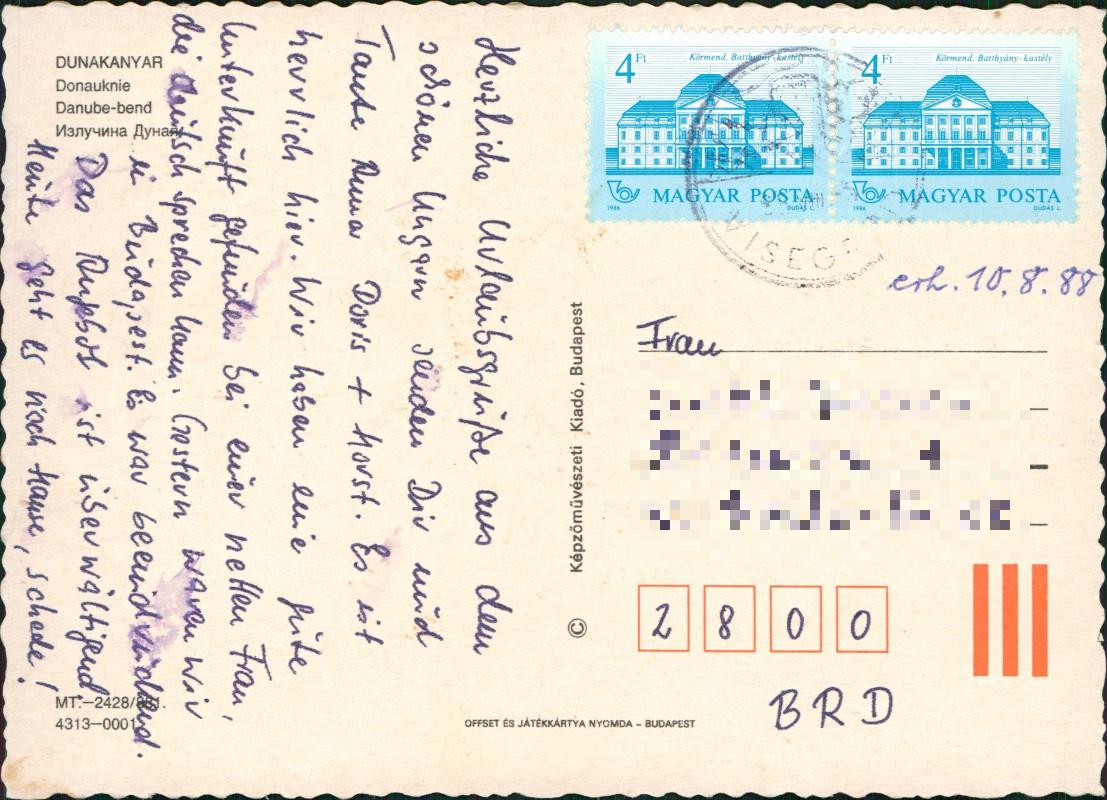 DUNAKANYAR
Donauknie
Danube-bend
Излучина Дуная
Herzliche Urlaubsgrüße aus dem
schönen Ungarn senden Dir und
Tante Anna Doris + Horst. Es ist
herrlich hier. Wir haben eine gute
Unterkunft gefunden bei einer netten Frau,
die deutsch sprechen kann. Gestern waren wir
in Budapest. Es war beeindruckend.
Das Angebot ist überwältigend.
Heute geht es nach Hause, schade!
MT.—2428/881.
4313—0001
© Képzőművészeti Kiadó, Budapest
OFFSET ÉS JÁTÉKKÁRTYA NYOMDA – BUDAPEST
4 Ft Körmend, Batthyány-kastély
MAGYAR POSTA
1986 DUDÁS L.
4 Ft Körmend, Batthyány-kastély
MAGYAR POSTA
1986 DUDÁS L.
VISEGR
erh. 10.8.88
Frau
2800
BRD